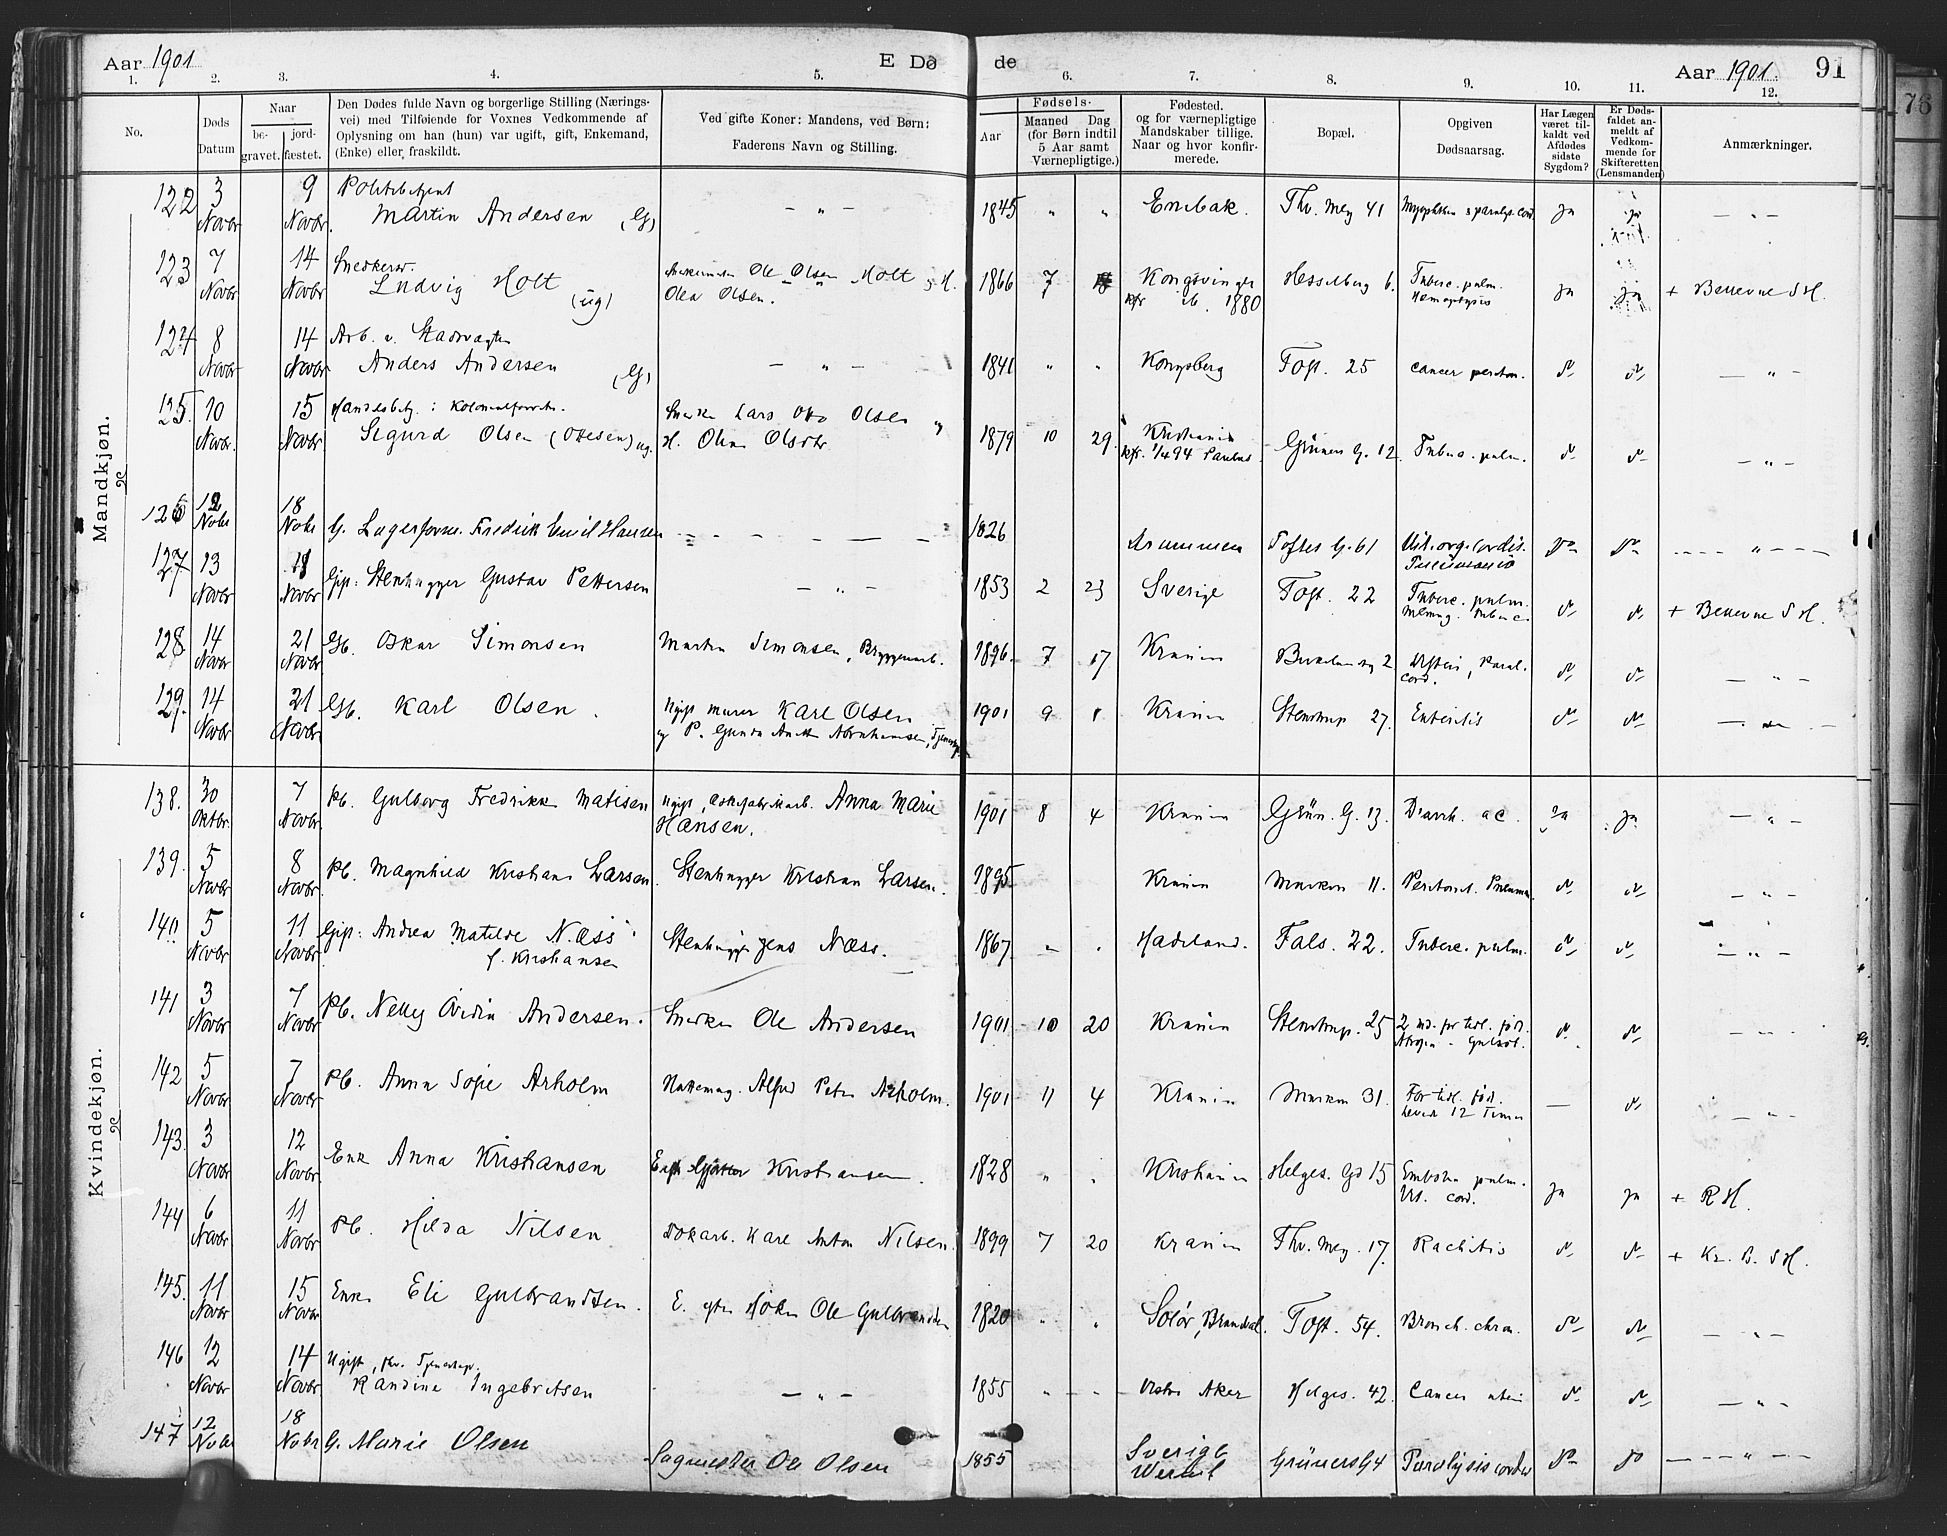 Aar 1901 E Dö de Aar 1901. 91
1. 2. 3. 4. 5. 6. 7. 8. 9. 10. 11. 12.
No.
Døds Datum
Naar be-gravet. jord-fæstet.
Den Dødes fulde Navn og borgerlige Stilling (Nærings-
vei) med Tilføiende for Voxnes Vedkommende af
Oplysning om han (hun) var ugift, gift, Enkemand,
(Enke) eller fraskildt.
Ved gifte Koner: Mandens, ved Børn:
Faderens Navn og Stilling.
Fødsels-
Aar
Maaned Dag
(for Børn indtil
5 Aar samt
Værnepligtige.)
Fødested.
og for værnepligtige
Mandskaber tillige.
Naar og hvor konfir-
merede.
Bopæl.
Opgiven
Dødsaarsag.
Har Lægen
været til-
kaldt ved
Afdødes
sidste
Sygdom?
Er Døds-
faldet an-
meldt af
Vedkom-
mende for
Skifteretten
(Lensmanden)
Anmærkninger.
76
Mandkjøn.
122 3 Novbr 9 Novbr. Politibetjent
Martin Andersen (G) — „ — 1845 „ „ Enebak. Thv. Mey 41 ja ja — „ —
123 7 Novbr 14 Novbr Snedkersv.
Ludvig Holt (ug) Ole Olsen Holt og H.
Olea Olsen. 1866 7 Kongsvinger
1880 Hesselberg 6. Tuberc. pulm.
Hæmoptysis ja ja + Bellevue S H.
124 8 Novbr 14 Novbr Arb. v. Stadsvagten
Anders Andersen (G) — „ — 1841 „ „ Kongsberg Toft. 25 cancer periton. — „ —
125. 10 Novbr. 15 Novbr Handelsbetj. i Kolonialforretn.
Sigurd Olsen (Ottesen) ug. Snekker Lars Otto Olsen og
H. Oline Olsdtr 1879 10 29. Kristiania
kfr. 1/4 94 Paulus Grüners G. 12 Tuberc. pulm. — „ —
126 12 Nobr 18 Nobr G. Lagerforv. Fredrik Emil Hansen 1826 Drammen Toftes G. 61 Vit. org. cordis.
Pneumonia — „ —
127 13 Novbr 18 Novbr Gift: Stenhugger Gustav Pettersen — „ — 1853 2 23 Sverige Toft. 22 Tuberc. pulm.
Mening. tuberc + Bellevue S H.
128. 14 Novbr 21 Novbr Gb. Oskar Simonsen Martin Simonsen, Bryggearb. 1896. 7 17 Krania 2 Paral.
cord. — „ —
129. 14 Novbr 21 Novbr Gb. Karl Olsen. Ugift murer Karl Olsen
og P. Gunda Anette Abrahamsen, 1901 9 Krania Stenstrup 27. Enteritis — „ —
Kvindekjøn.
138. 30 Oktbr. 7 Novbr. Pb. Gulborg Fredrikke Matisen Ugift, Anna Marie
Hansen. 1901 8 4 Krania Grün. G. 13. Diarrh. ac. Ja ja — „ —
139. 5 Novbr 8 Novbr Pb. Magnhild Kristiane Larsen Stenhugger Kristian Larsen. 1895. Krania Marken 11. Peritonit. Pneumon. — „ —
140 5 Novbr 11 Novbr Gift: Andrea Matilde Næss
f. Kristiansen Stenhugger Jens Næss. 1867. Hadeland. Fals. 22. Tuberc. pulm. — „ —
141 3 Novbr 7 Novbr Pb. Nelly Ovidia Andersen. Snekker Ole Andersen 1901 10 20 Krania Stenstrup. 25 2 Md. for tidl. født. — „ —
142 5 Novbr 7 Novbr Pb. Anna Sofie Arholm Hattemag. Alfred Peter Arholm. 1901 11 4 Krania Marken 31. For tidl. født.
levede 12 Timer — — „ —
143. 3 Novbr 12 Novbr Enk Anna Kristiansen Kristiansen. 1828 „ Kristiania Helges. Gd 15 Embolia pulm.
Vit. cord. ja ja + R H.
144 6 Novbr 11 Novbr Pb. Hilda Nilsen Dokarb. Karl Anton Nilsen. 1899 7 20 Krania Thv. Mey. 17. Rachitis + Kr. B. S H.
145. 11 Novbr 15 Novbr Enke Eli Gulbrandsen. E. efter Ole Gulbrandsen 1820 „ „ Solør, Brandval. Toft. 54. Bronch. chron. — „ —
146 12 Novbr 14 Novbr Ugift, fhv. Tjenestep.
Randine Ingebretsen — „ — 1855 Vestre Aker Helges. 42. Cancer uteri — „ —
147 12 Nobr 18 Nobr G. Marie Olsen Sagmester Ole Olsen 1855 Sverige
Grüners G 4 Paralysis cordis — „ —